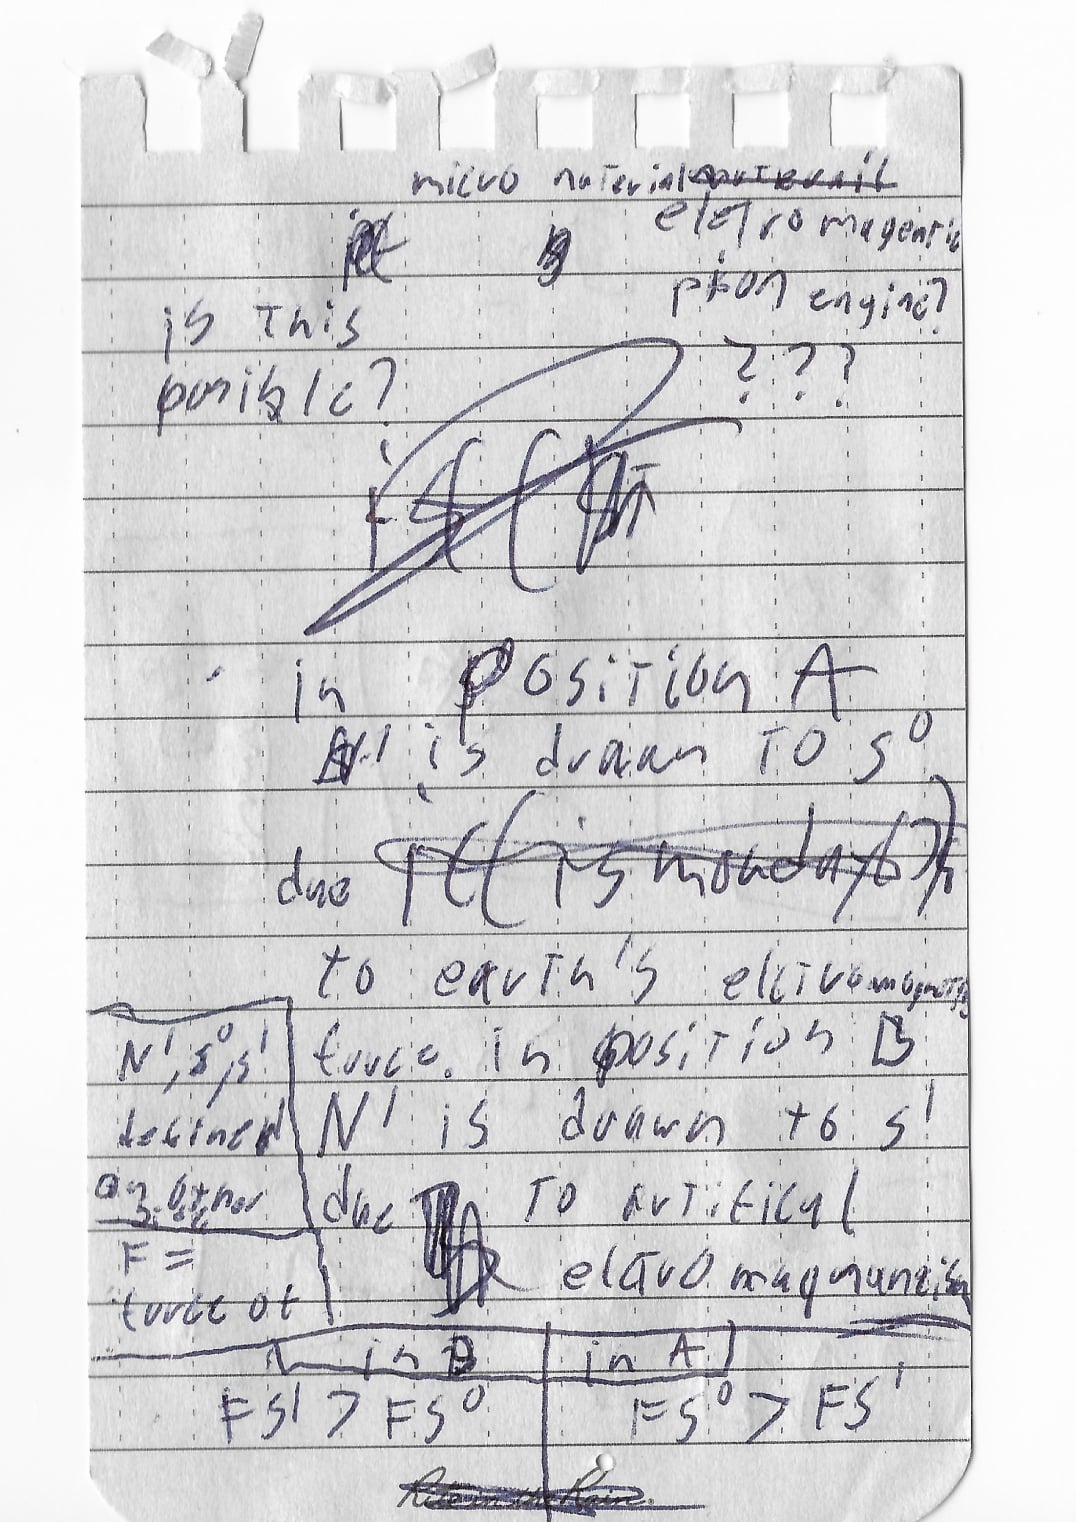 micro material
eletro magentic
is this
pison engine?
posible?
???
in position A
N' is drawn TO s⁰
due
to earth's elctromagnetic
force. in position B
N' is drawn to s'
due TO artifical
elctro magnanzism
N', s⁰, s'
defined
on other
side
F =
force of
in B
in A
FS' > FS⁰
FS⁰ > FS'
Rite in the Rain.